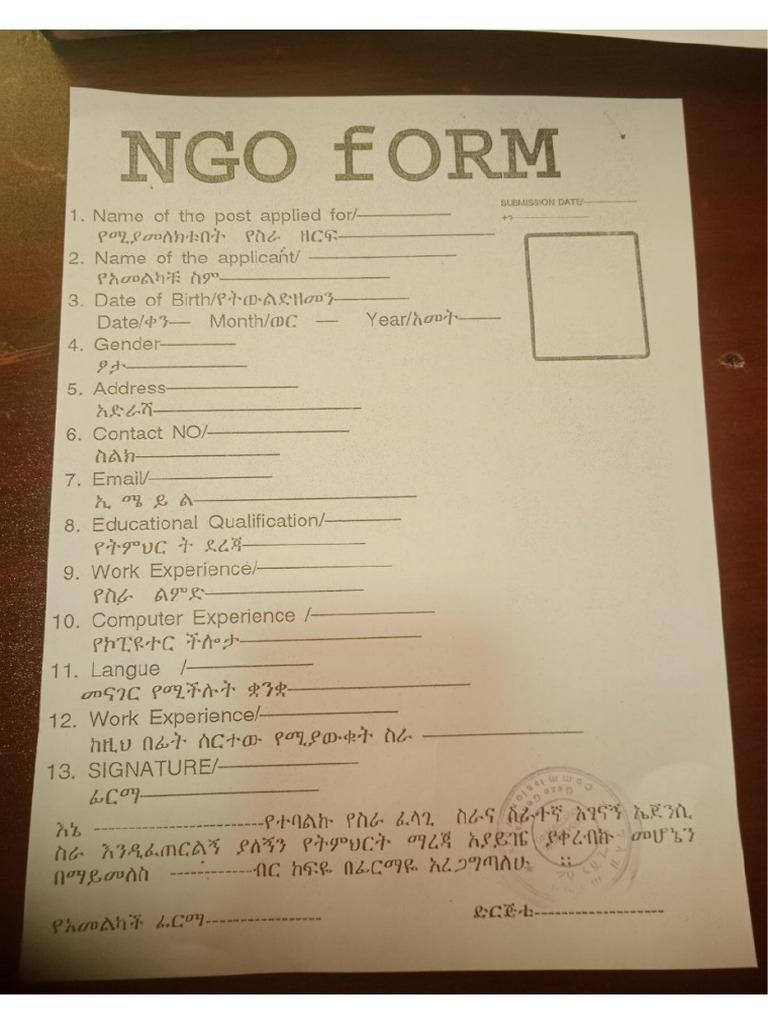 NGO fORM
SUBMISSION DATE/
ቀን
1. Name of the post applied for/
የሚያመለክቱበት የስራ ዘርፍ
2. Name of the applicant/
የአመልካቹ ስም
3. Date of Birth/የትውልድዘመን
Date/ቀን Month/ወር Year/አመት
4. Gender
ፆታ
5. Address
አድራሻ
6. Contact NO/
ስልክ
7. Email/
ኢ ሜ ይ ል
8. Educational Qualification/
የትምህር ት ደረጃ
9. Work Experience/
የስራ ልምድ
10. Computer Experience /
የኮፒዩተር ችሎታ
11. Langue /
መናገር የሚችሉት ቋንቋ
12. Work Experience/
ከዚህ በፊት ሰርተው የሚያውቁት ስራ
13. SIGNATURE/
ፊርማ
እኔ ------------------------የተባልኩ የስራ ፈላጊ ስራና ሰራተኛ አገናኝ ኤጀንሲ
ስራ እንዲፈጠርልኝ ያለኝን የትምህርት ማረጃ አያይዤ ያቀረብኩ መሆኔን
በማይመለስ ------------ብር ከፍዬ በፊርማዬ አረጋግጣለሁ ።
የአመልካች ፊርማ----------------
ድርጅቱ------------------
Commission